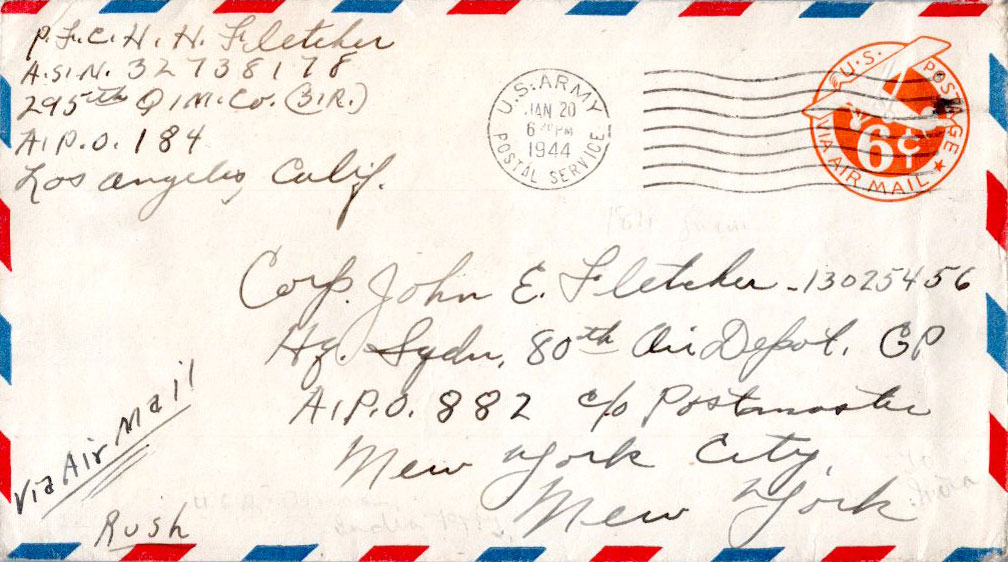 P.F.C. H. H. Fletcher
A.S.N. 32738178
295th Q.M. Co. (BIR.)
A.P.O. 184
Los Angeles, Calif.
U.S. ARMY
JAN 20
6 PM
1944
POSTAL SERVICE
U.S. POSTAGE
6¢
VIA AIR MAIL
Corp. John E. Fletcher - 13025456
Hq. Sqdn, 80th Air Depot, GP
A.P.O. 882 c/o Postmaster
New York City,
New York
Via Air Mail
Rush